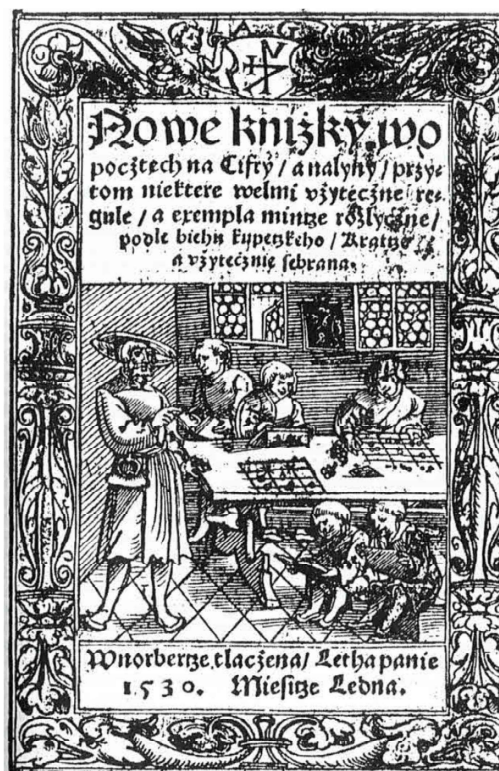 A G
Nowe knižky wo
pocžtech na Cifry / a nalyny / przy⸗
tom niektere welmi vžyteczne re⸗
gule / a exempla mintze rožlyczne /
podle biehu kupetzkeho / Kratze
a vžytecznie sebrana.
Wnorbertze tlaczena / Letha panie
1530. Miesitze Ledna.